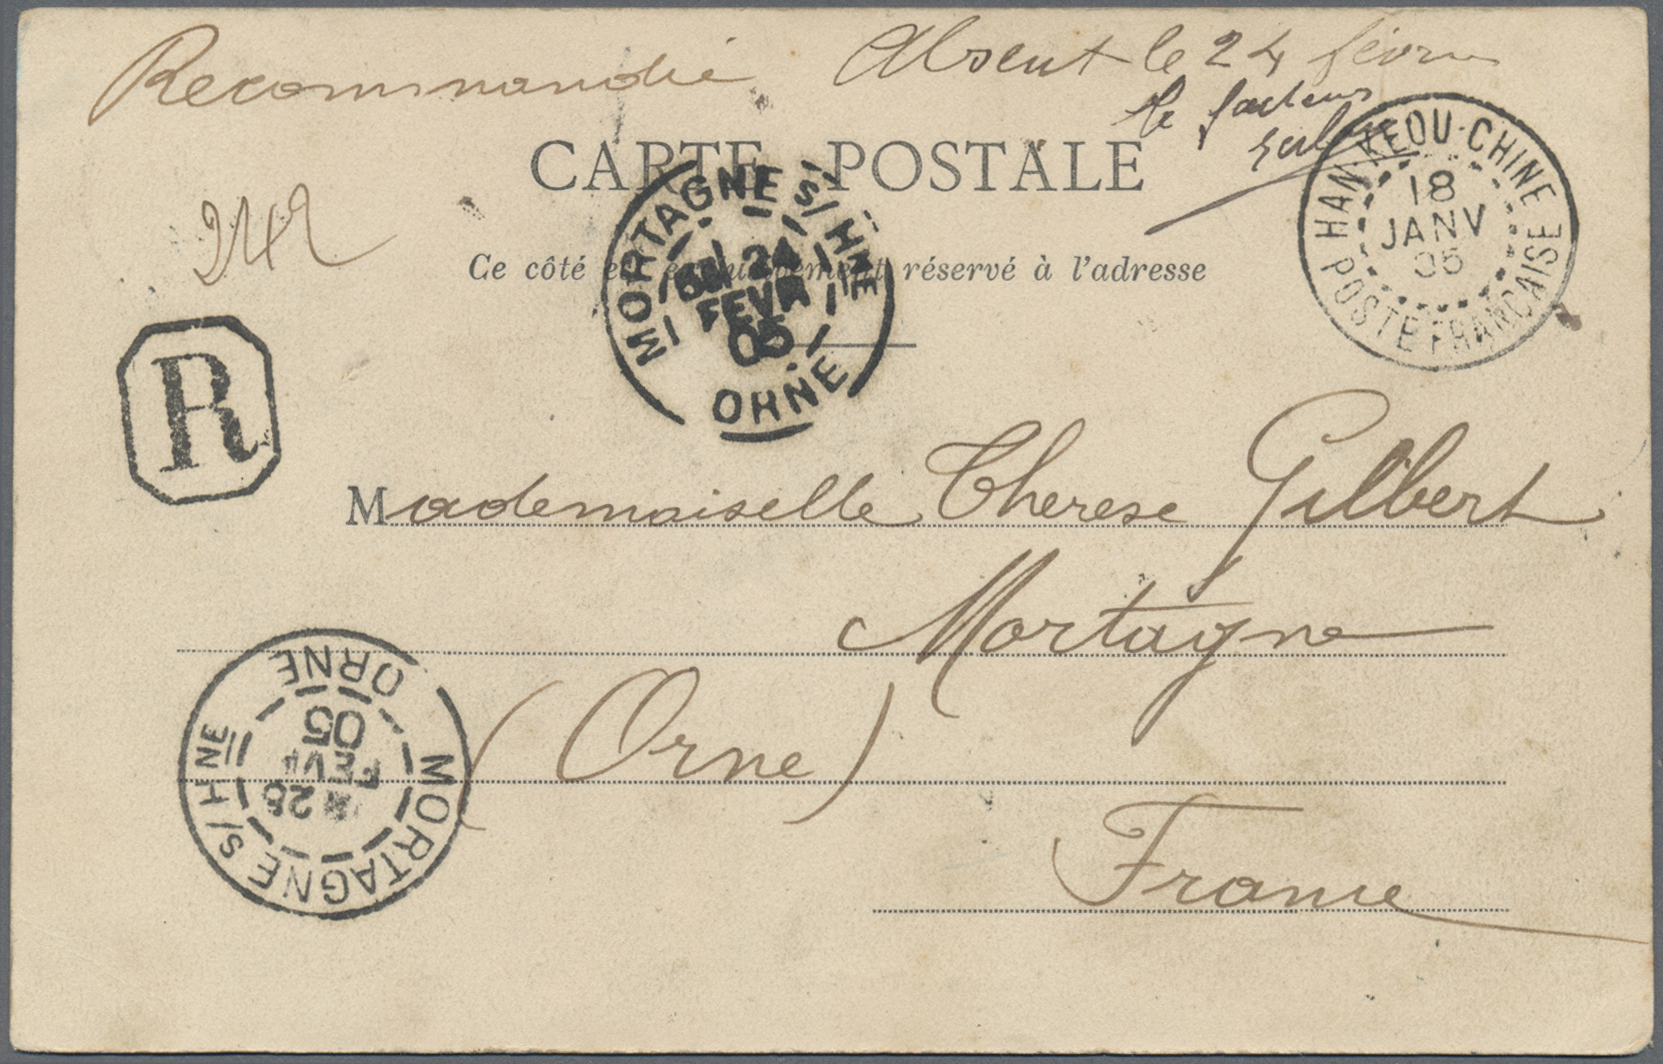 Recommandié Absent le 24 février
le facteur
CARTE POSTALE
HAN-KEOU-CHINE
18
JANV
05
POSTE FRANCAISE
242
MORTAGNE S/ HNE
24
FEVR
05
ORNE
Ce côté est exclusivement réservé à l'adresse
R
Mademoiselle Therese Gilbert
Mortagne
(Orne)
France
MORTAGNE S/ HNE
25
FEVR
05
ORNE